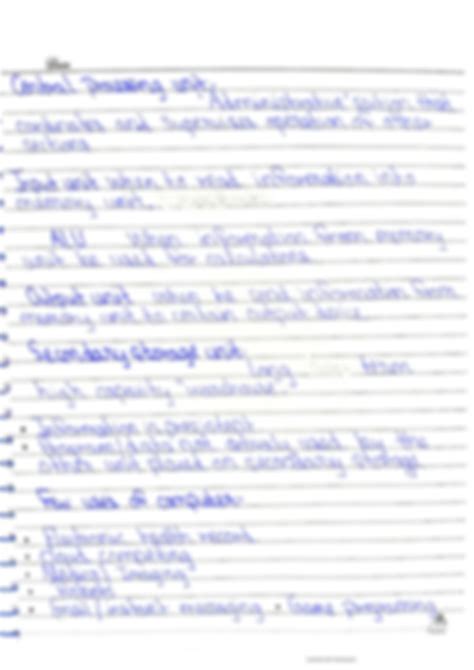 Central processing unit.
"Administrative" section that
cordinates and supervises operation of other
sections
Input unit when to read information into
memory unit.
ALU When information from memory
unit be used for calculations
Output unit when be send information from
memory unit to certain output
Secondary storage unit
long term
high capacity "warehouse".
• Information is persistent
• Programs/data not actively used by the
other unit placed on secondary storage
Few uses of computer-
• Electronic health record
• Cloud computing
• Medical Imaging
• 
• Email/instant messaging • Game programing